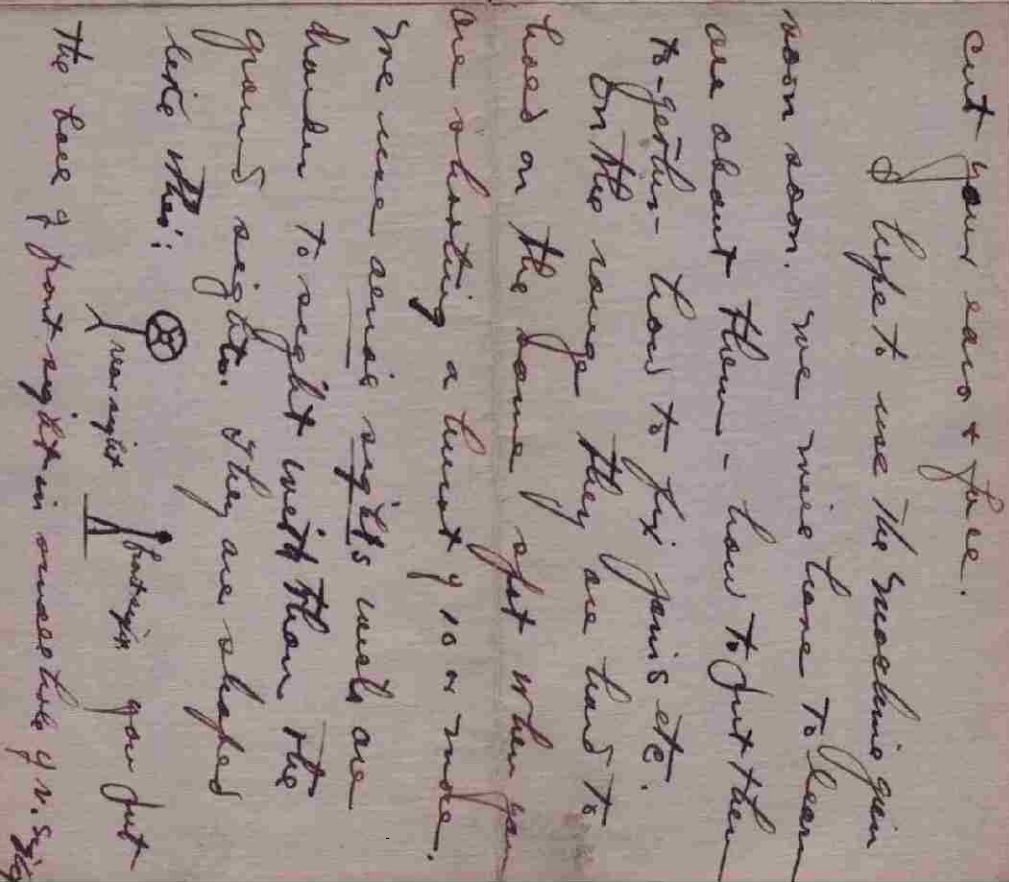 cut your ears & face.
I hope to use the machine gun
soon soon. We will have to learn
all about them - how to put them
to-gether - how to fix jams etc.
On the range they are hard to
hold on the same spot when you
are shooting a burst of 10 or more.
We use aerial sights wich are
harder to sight with than the
ground sights. They are shaped
like this:
rear sight
front sight
you put
the ball of front sight in inner thing of r. sight